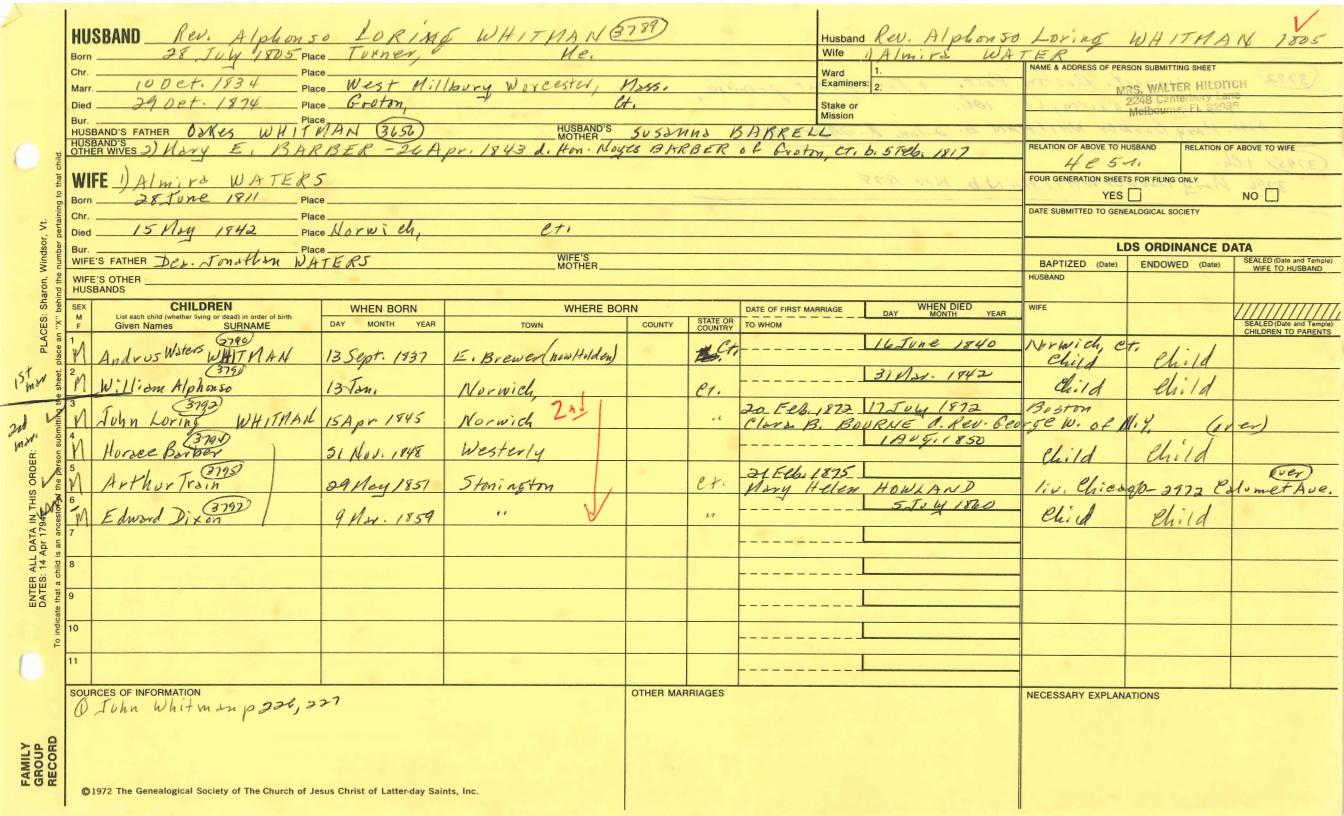 HUSBAND Rev. Alphonso LORING WHITMAN 3789
Born 28 July 1805 Place Turner, Me.
Chr. Place
Marr. 10 Oct. 1834 Place West Millbury Worcester, Mass.
Died 29 Oct. 1874 Place Groton, Ct.
Bur. Place
HUSBAND'S FATHER Oakes WHITMAN 3656 HUSBAND'S MOTHER Susanna BARRELL
HUSBAND'S OTHER WIVES 2) Mary E. BARBER - 26 Apr. 1843 d. Hon. Noyes BARBER of Groton, Ct. b. 5 Feb. 1817
WIFE 1) Almira WATERS
Born 28 June 1811 Place
Chr. Place
Died 15 May 1842 Place Norwich, Ct.
Bur. Place
WIFE'S FATHER Dea. Jonathan WATERS WIFE'S MOTHER
WIFE'S OTHER HUSBANDS
Husband Rev. Alphonso Loring WHITMAN 1805
Wife 1) Almira WATER
Ward Examiners: 1.
2.
Stake or Mission
NAME & ADDRESS OF PERSON SUBMITTING SHEET
MRS. WALTER HILDITCH
2248 Canterbury Lane
Melbourne, FL 32935
RELATION OF ABOVE TO HUSBAND RELATION OF ABOVE TO WIFE
4c5r.
FOUR GENERATION SHEETS FOR FILING ONLY
YES NO
DATE SUBMITTED TO GENEALOGICAL SOCIETY
LDS ORDINANCE DATA
BAPTIZED (Date) ENDOWED (Date) SEALED (Date and Temple) WIFE TO HUSBAND
HUSBAND
WIFE
SEALED (Date and Temple) CHILDREN TO PARENTS
SEX M F CHILDREN WHEN BORN WHERE BORN DATE OF FIRST MARRIAGE WHEN DIED
List each child (whether living or dead) in order of birth
Given Names SURNAME DAY MONTH YEAR TOWN COUNTY STATE OR COUNTRY TO WHOM DAY MONTH YEAR
1 M Andrus Waters WHITMAN 3790 13 Sept. 1837 E. Brewer (now Holden) Ct. 16 June 1840 Norwich, Ct. Child Child
2 M William Alphonso 3791 13 Jan. Norwich, Ct. 31 Mar. 1842 Child Child
3 M John Loring WHITMAN 3792 15 Apr 1845 Norwich 2nd " 20 Feb. 1872 17 July 1872 Boston
Clara B. BOURNE d. Rev. George W. of N.Y. (over)
4 M Horace Barber 3794 21 Nov. 1848 Westerly 1 Aug. 1850 Child Child
5 M Arthur Train 3795 29 May 1851 Stonington Ct. 21 Feb. 1875 over
Mary Helen HOWLAND liv. Chicago - 2972 Calumet Ave.
6 M Edward Dixon 3797 9 Mar. 1859 " " 5 July 1860 Child Child
7
8
9
10
11
1st mar
2nd mar.
SOURCES OF INFORMATION OTHER MARRIAGES NECESSARY EXPLANATIONS
① John Whitman p 226, 227
©1972 The Genealogical Society of The Church of Jesus Christ of Latter-day Saints, Inc.
FAMILY GROUP RECORD
ENTER ALL DATA IN THIS ORDER:
DATES: 14 Apr 1794
PLACES: Sharon, Windsor, Vt.
To indicate that a child is an ancestor of the person submitting the sheet, place an "X" behind the number pertaining to that child.